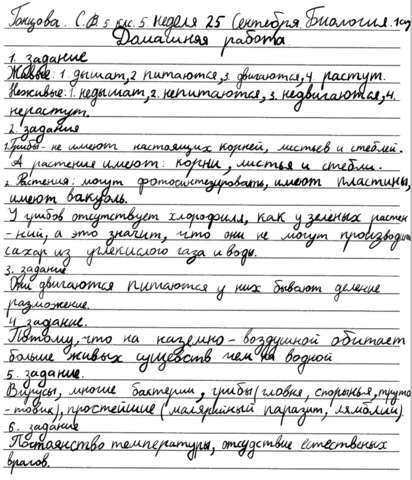 Гонцова. С.В 5 клс. 5 неделя 25 Сентебря. Биология.
Домашняя работа.
1. задание
Живые: 1 дышат, 2 питаются, 3. двигаются, 4 растут.
Неживые: 1. недышат, 2. непитаются, 3. недвигаются, 4.
нерастут.
2. задания
1. Грибы - не имеют настоящих корней, листьев и стеблей.
А растения имеют: корни, листья и стебли.
2. Растения: могут фотосинтезировать, имеют пластины,
имеют вакуоль.
У грибов отсутствует хлорофилл, как у зеленых растен
-ний, а это значит, что они не могут производить
сахар из углекислого газа и воды.
3. задание
Они двигаются питаются у них бывают деление
разможение.
4 задание.
Потому, что на наземно-воздушной обитает
больше живых существ чем на водной
5. задание.
Вирусы, многие бактерии, грибы (головня, спорынья, труто
-товик), простейшие (малярийный паразит, лямблии)
6. задание
Постаянство температуры, отсудствие естественых
врагов.